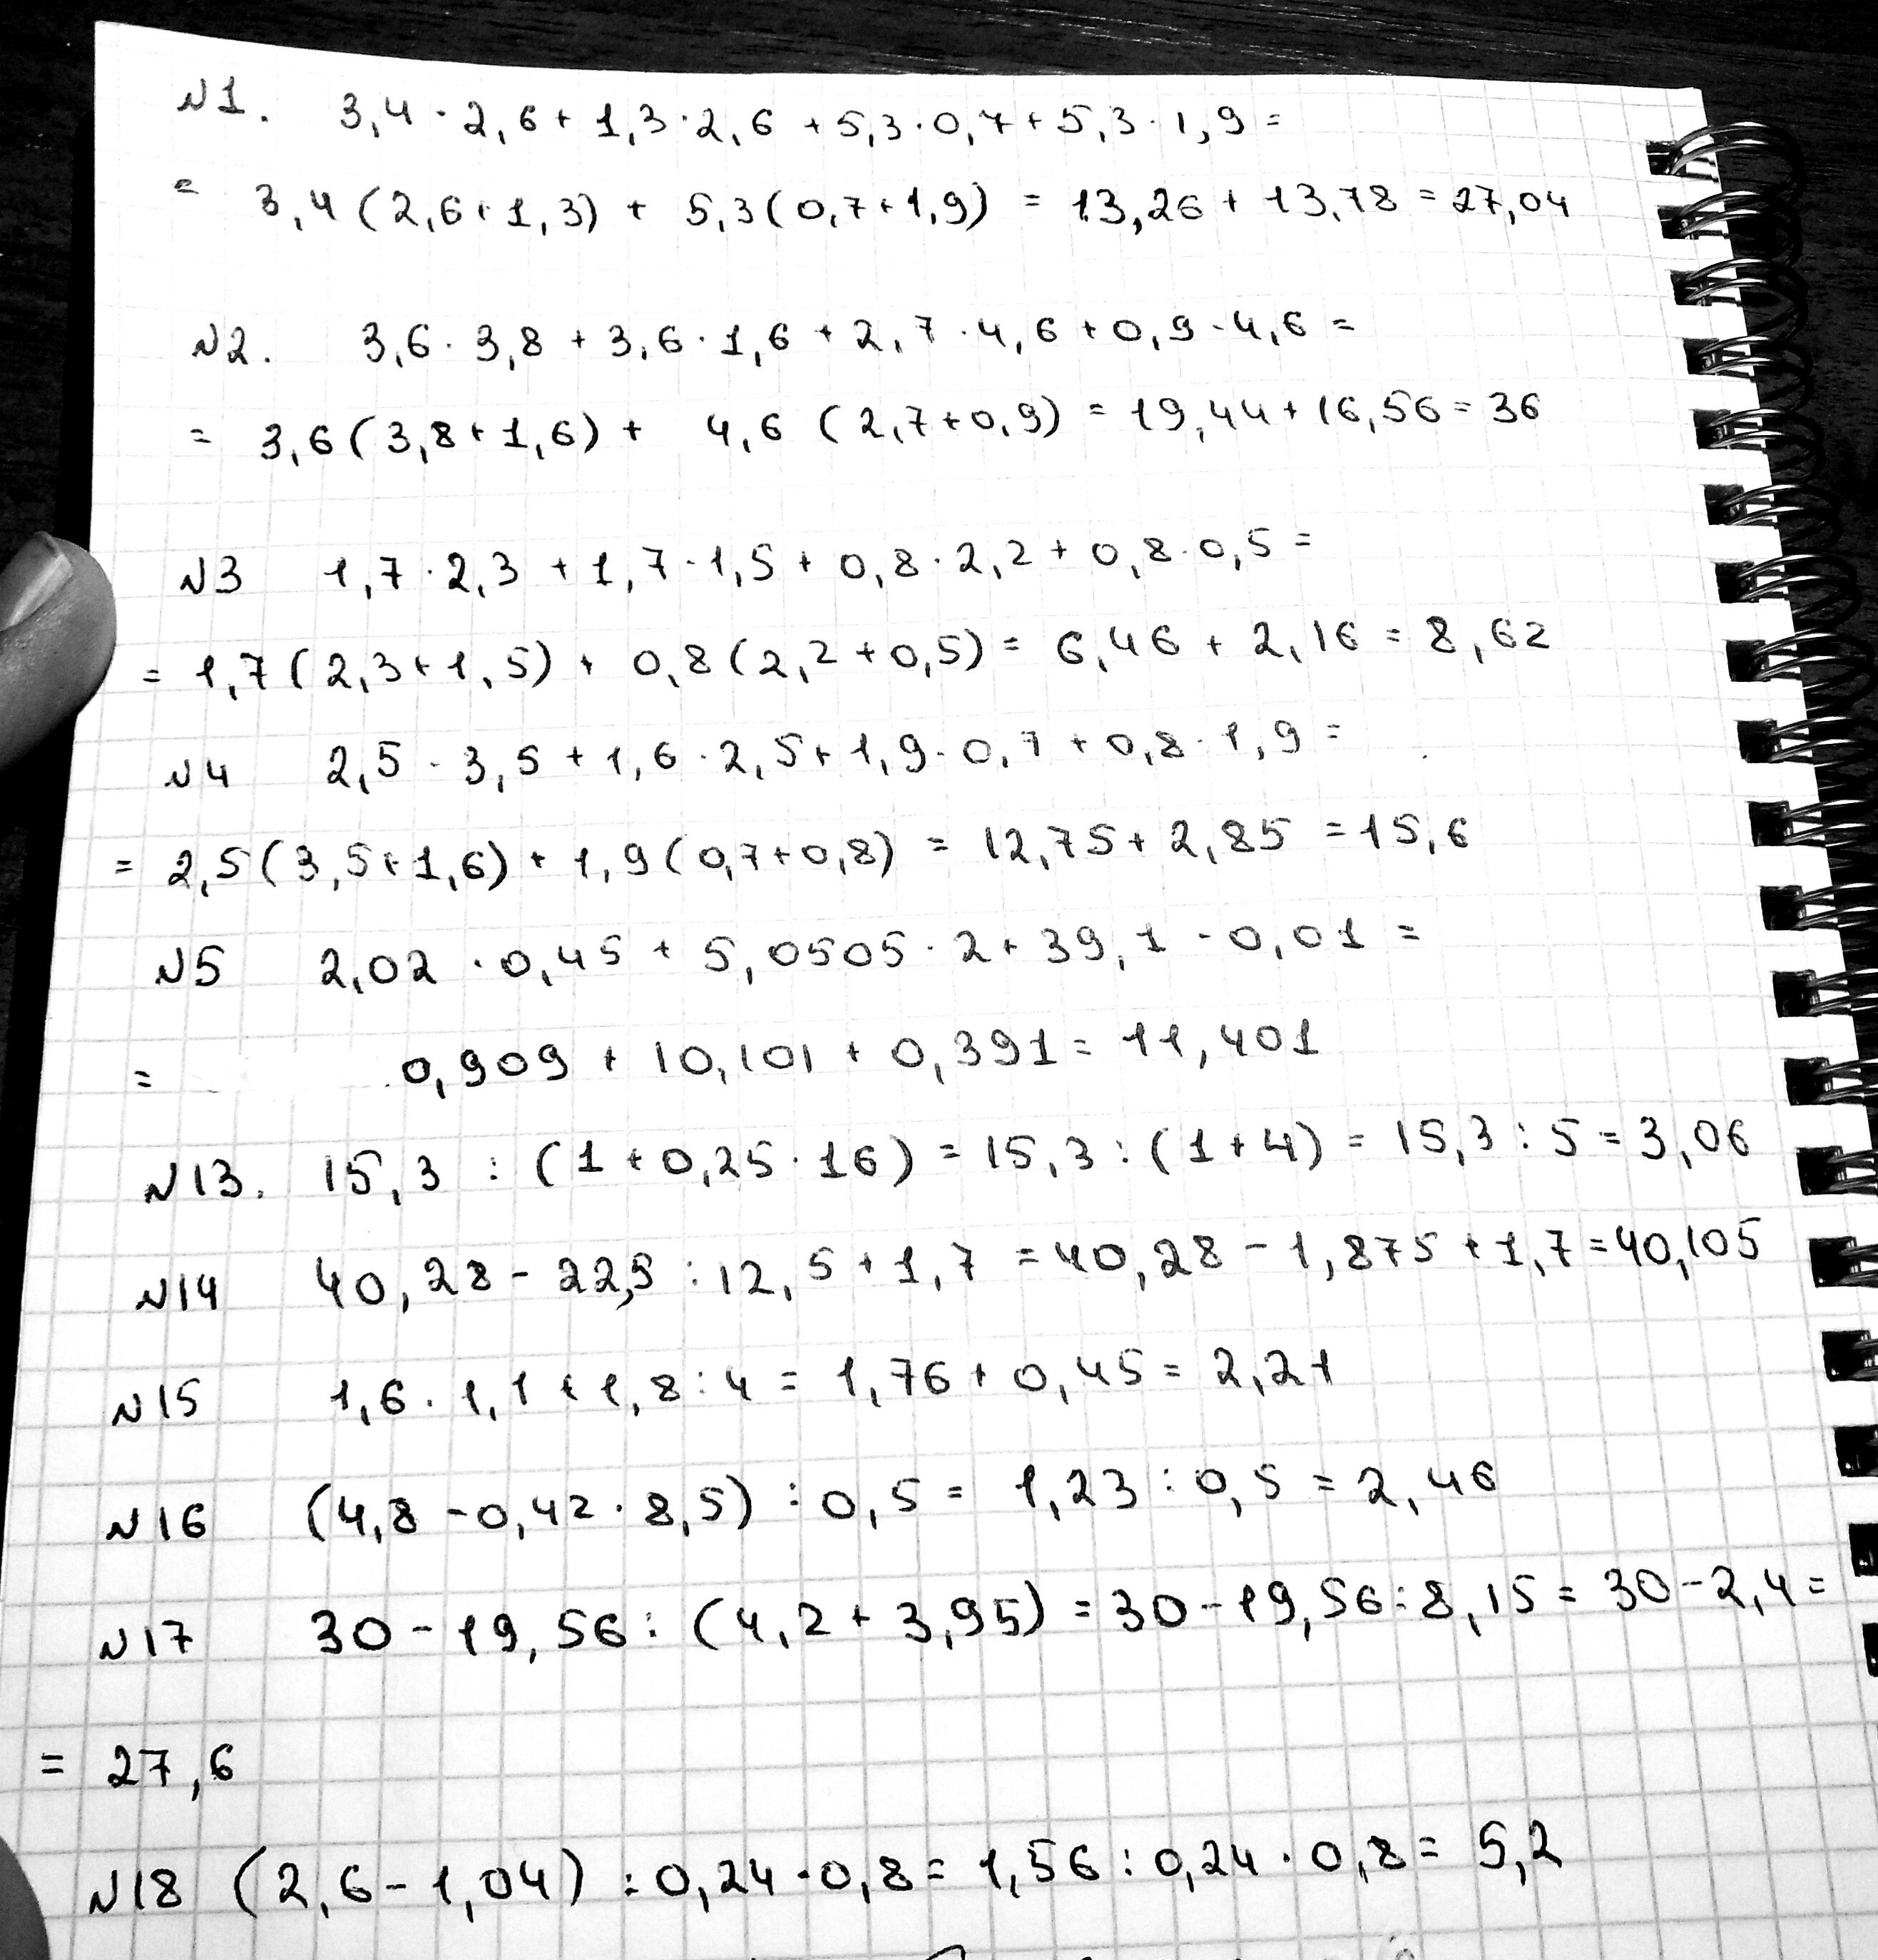 N1. 3,4 · 2,6 + 1,3 · 2,6 + 5,3 · 0,7 + 5,3 · 1,9 =
= 3,4 (2,6 + 1,3) + 5,3 (0,7 + 1,9) = 13,26 + 13,78 = 27,04
N2. 3,6 · 3,8 + 3,6 · 1,6 + 2,7 · 4,6 + 0,9 · 4,6 =
= 3,6 (3,8 + 1,6) + 4,6 (2,7 + 0,9) = 19,44 + 16,56 = 36
N3 1,7 · 2,3 + 1,7 · 1,5 + 0,8 · 2,2 + 0,8 · 0,5 =
= 1,7 (2,3 + 1,5) + 0,8 (2,2 + 0,5) = 6,46 + 2,16 = 8,62
N4 2,5 · 3,5 + 1,6 · 2,5 + 1,9 · 0,7 + 0,8 · 1,9 =
= 2,5 (3,5 + 1,6) + 1,9 (0,7 + 0,8) = 12,75 + 2,85 = 15,6
N5 2,02 · 0,45 + 5,0505 · 2 + 39,1 · 0,01 =
= 0,909 + 10,101 + 0,391 = 11,401
N13. 15,3 : (1 + 0,25 · 16) = 15,3 : (1 + 4) = 15,3 : 5 = 3,06
N14 40,28 - 22,5 : 12,5 + 1,7 = 40,28 - 1,875 + 1,7 = 40,105
N15 1,6 · 1,1 + 1,8 : 4 = 1,76 + 0,45 = 2,21
N16 (4,8 - 0,42 · 8,5) : 0,5 = 1,23 : 0,5 = 2,46
N17 30 - 19,56 : (4,2 + 3,95) = 30 - 19,56 : 8,15 = 30 - 2,4 =
= 27,6
N18 (2,6 - 1,04) : 0,24 · 0,8 = 1,56 : 0,24 · 0,8 = 5,2